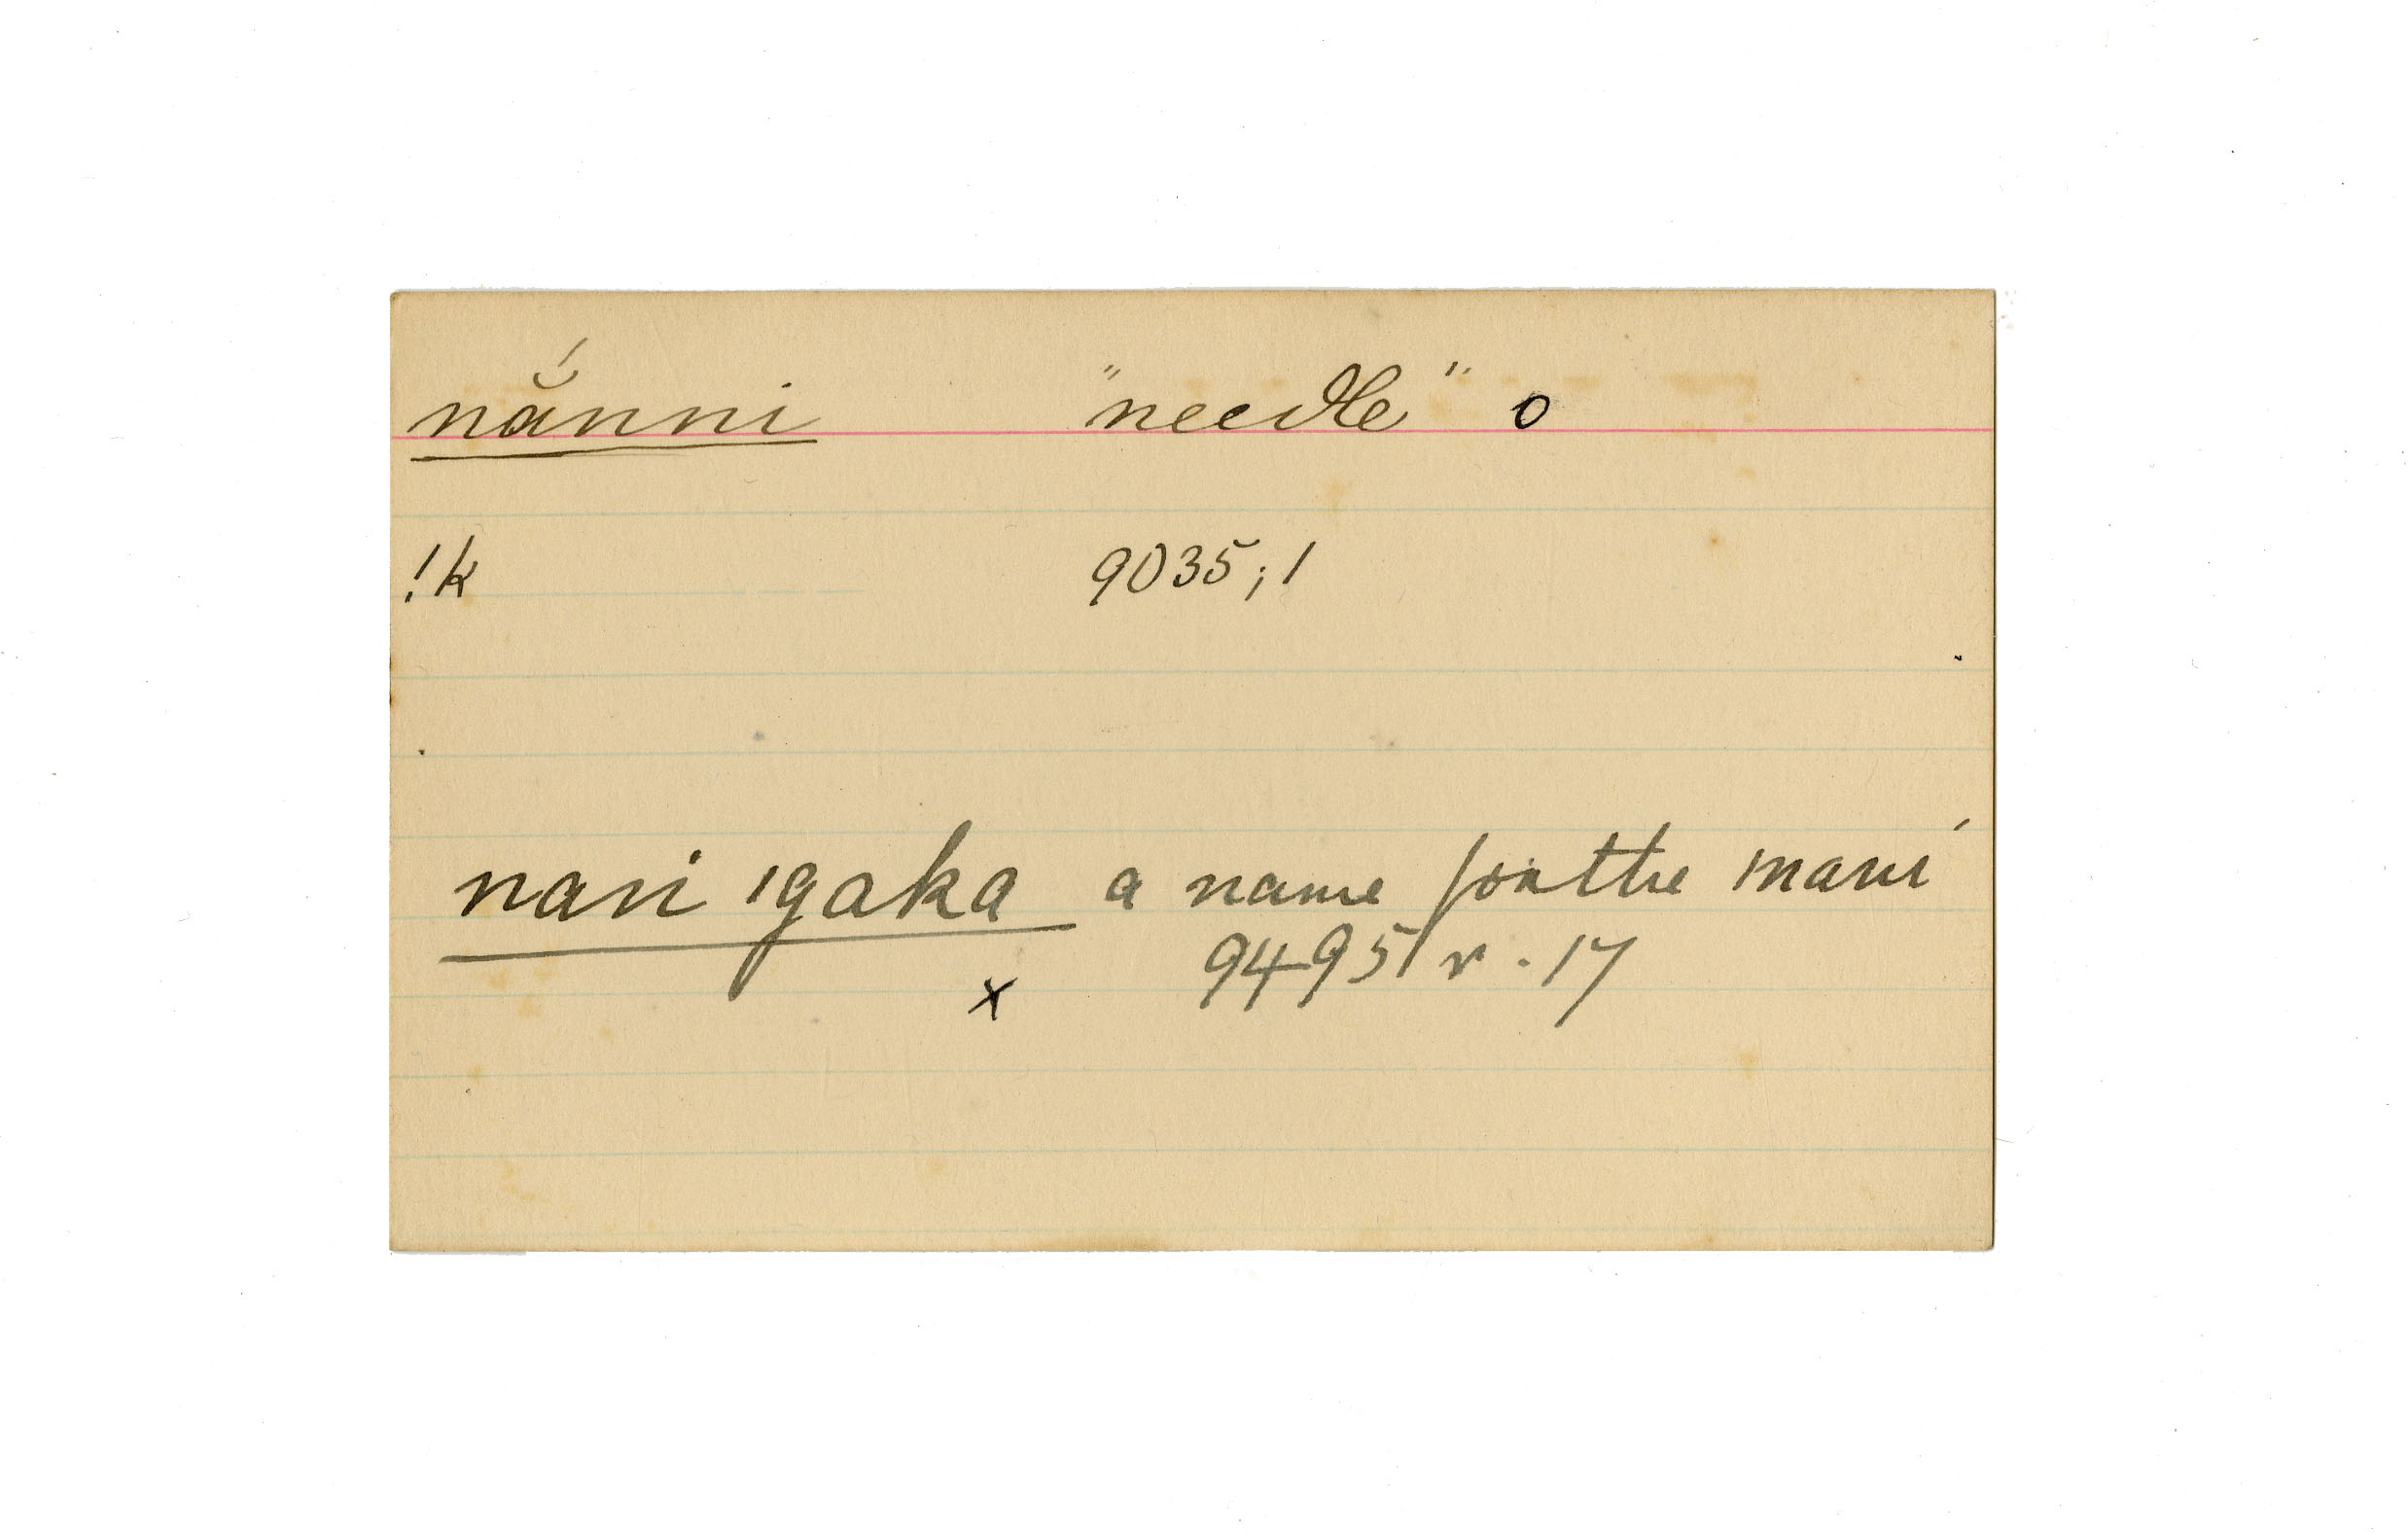 nắnni "needle" o
!k 9035; 1
nani igaka a name for the mani
x 9495 v. 17